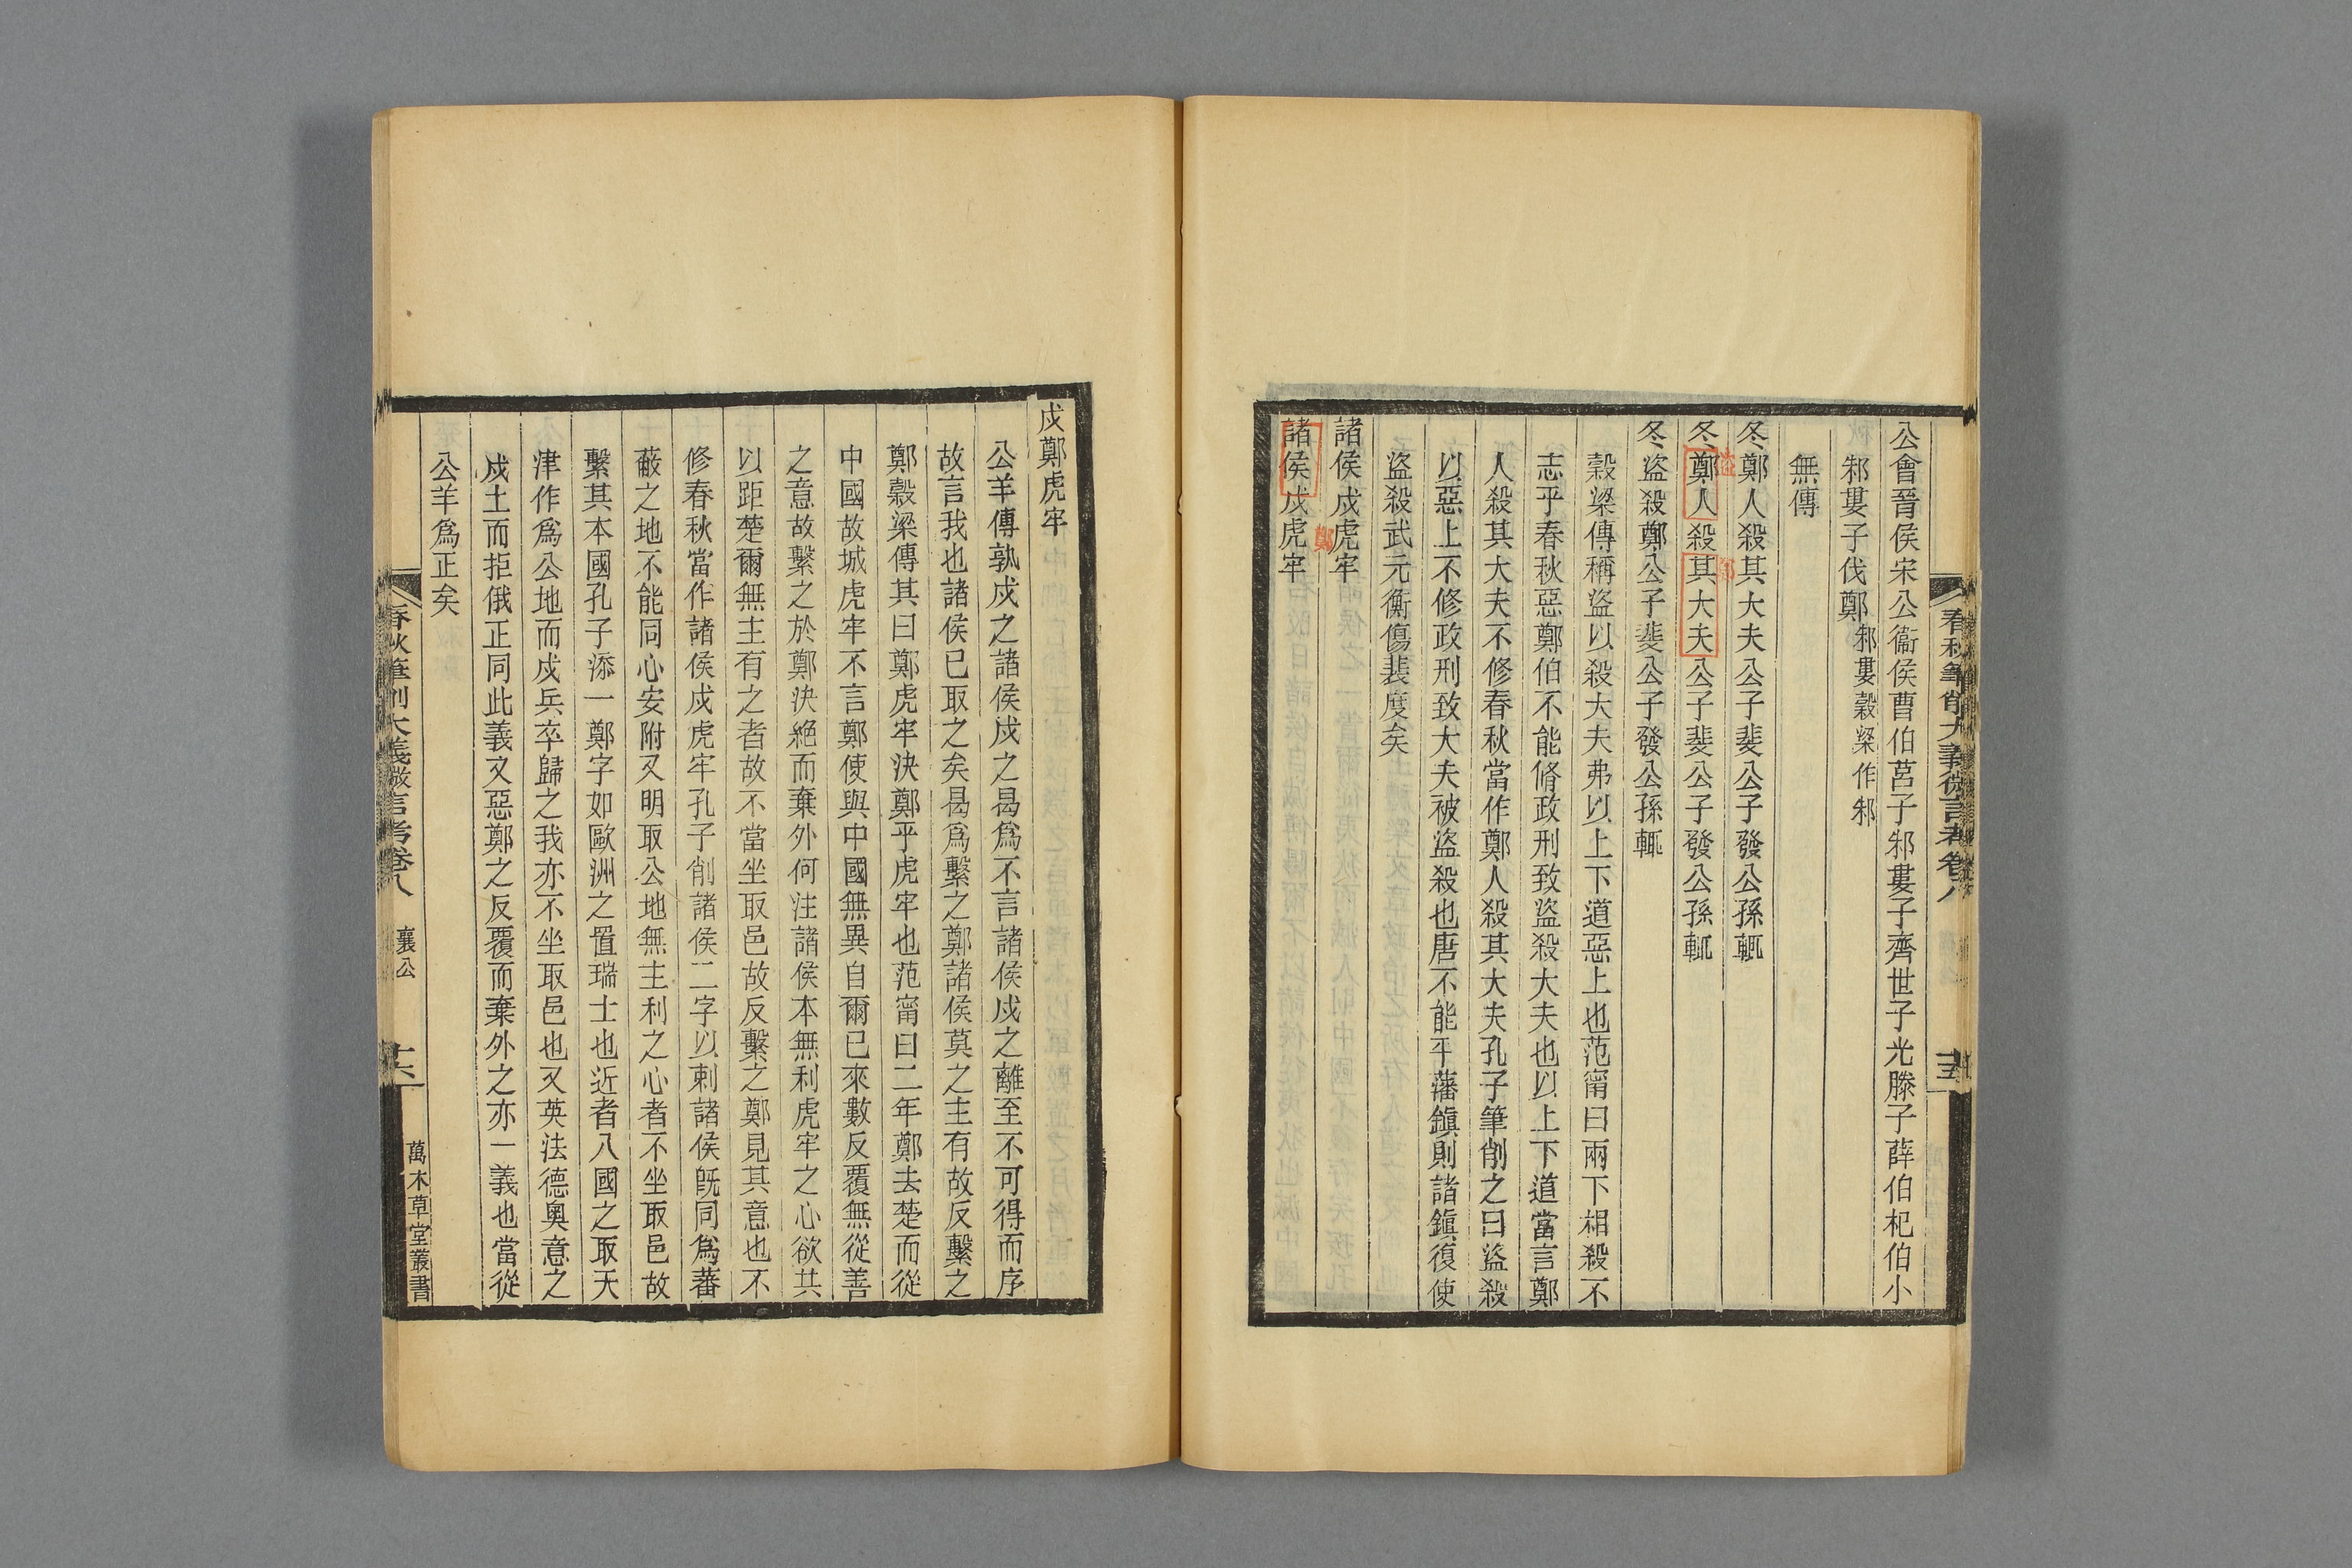 春秋筆削大義微言考卷八
十五
公會晉侯宋公衞侯曹伯莒子邾婁子齊世子光滕子薛伯杞伯小
邾婁子伐鄭邾婁穀梁作邾
無傳
冬鄭人殺其大夫公子斐公子發公孫輒
盜
鄭
冬鄭人殺其大夫公子斐公子發公孫輒
冬盜殺鄭公子斐公子發公孫輒
穀梁傳稱盜以殺大夫弗以上下道惡上也范甯曰兩下相殺不
志乎春秋惡鄭伯不能脩政刑致盜殺大夫也以上下道當言鄭
人殺其大夫不修春秋當作鄭人殺其大夫孔子筆削之曰盜殺
以惡上不修政刑致大夫被盜殺也唐不能平藩鎭則諸鎭復使
盜殺武元衡傷裴度矣
諸侯戍虎牢
鄭
諸侯戍虎牢
戍鄭虎牢
公羊傳孰戍之諸侯戍之曷爲不言諸侯戍之離至不可得而序
故言我也諸侯已取之矣曷爲繫之鄭諸侯莫之主有故反繫之
鄭穀梁傳其曰鄭虎牢決鄭乎虎牢也范甯曰二年鄭去楚而從
中國故城虎牢不言鄭使與中國無異自爾已來數反覆無從善
之意故繫之於鄭決絕而棄外何注諸侯本無利虎牢之心欲共
以距楚爾無主有之者故不當坐取邑故反繫之鄭見其意也不
修春秋當作諸侯戍虎牢孔子削諸侯二字以刺諸侯旣同爲蕃
蔽之地不能同心安附又明取公地無主利之心者不坐取邑故
繫其本國孔子添一鄭字如歐洲之置瑞士也近者八國之取天
津作爲公地而戍兵卒歸之我亦不坐取邑也又英法德奧意之
戍土而拒俄正同此義又惡鄭之反覆而棄外之亦一義也當從
公羊爲正矣
春秋筆削大義微言考卷八
襄公
十六
萬木草堂叢書